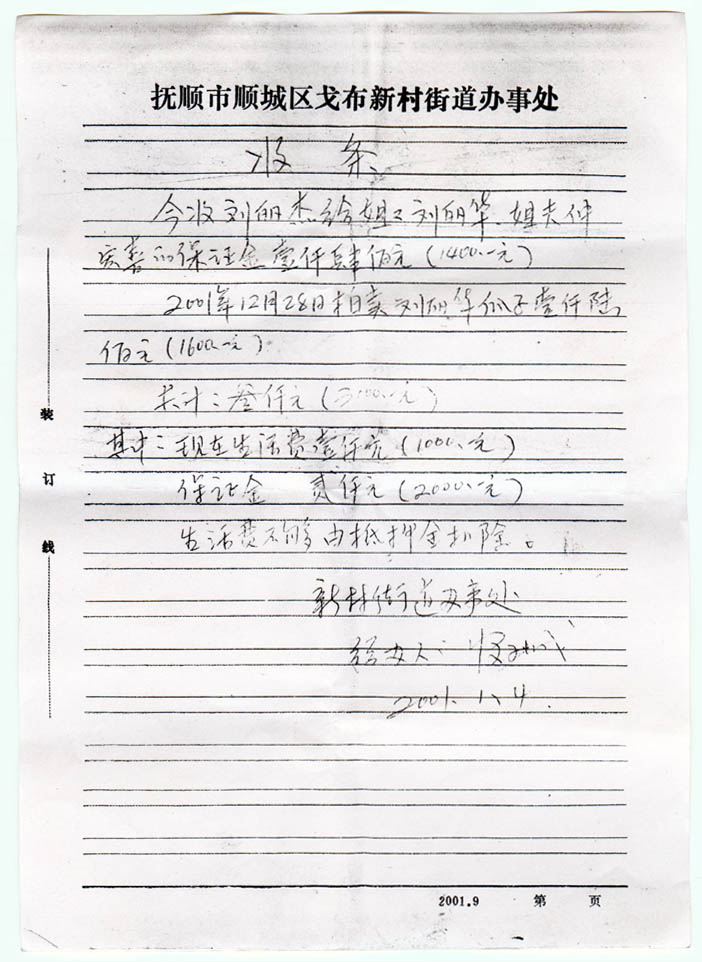 抚顺市顺城区戈布新村街道办事处
收条
今收刘丽杰给姐姐刘丽华、姐夫仲
的保证金壹仟肆佰元(1400.-元)
2001年12月28日拍卖刘丽华瓜子壹仟陆
佰元(1600.-元)
共计:叁仟元(3000.-元)
其中:现在生活费壹仟元(1000.-元)
保证金 贰仟元(2000.-元)
生活费不够由抵押金扣除。
新村街道办事处
经办人:
2001.1
装
订
线
2001.9 第 页